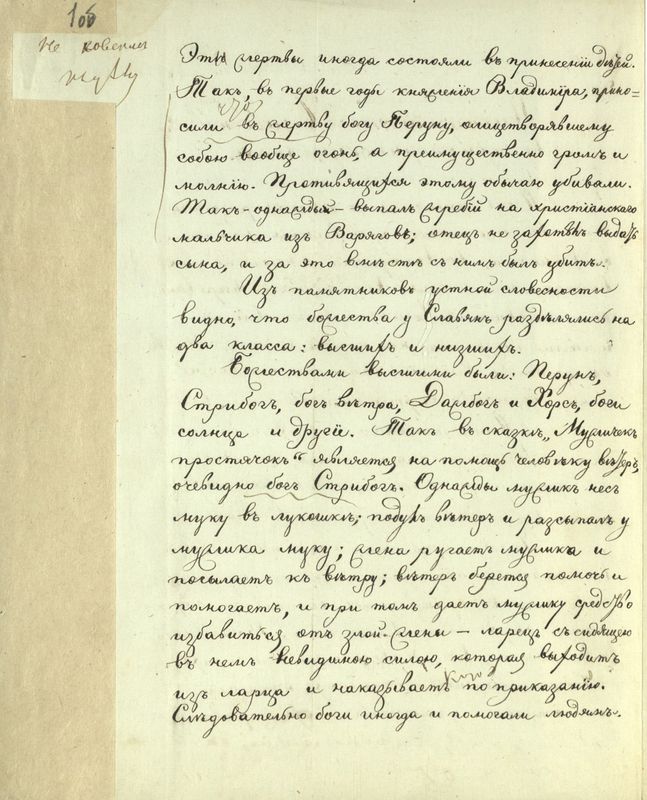 106
не
Эти жертвы иногда состояли въ принесеніи дѣтей.
Такъ, въ первые годы княженія Владиміра, прино=
что?
сили въ жертву богу Перуну, олицетворявшему
собою вообще огонь, а преимущественно громъ и
молнію. Противящихся этому обычаю убивали.
Такъ однажды выпалъ жребій на христіанскаго
мальчика изъ Варяговъ; отецъ не захотѣлъ выдать
сына, и за это вмѣстѣ съ нимъ былъ убитъ.
Изъ памятниковъ устной словесности
видно, что божества у Славянъ раздѣлялись на
два класса: высшихъ и низшихъ.
Божествами высшими были: Перунъ,
Стрибогъ, богъ вѣтра, Дажбогъ и Хорсъ, боги
солнца и другіе. Такъ въ сказкѣ „Мужичекъ
простячокъ“ является на помощь человѣку вѣтеръ,
очевидно богъ Стрибогъ. Однажды мужикъ несъ
муку въ лукошкѣ; подулъ вѣтеръ и разсыпалъ у
мужика муку; жена ругаетъ мужика и
посылаетъ къ вѣтру; вѣтеръ берется помочь и
помогаетъ, и при томъ даетъ мужику средство
избавиться отъ злой жены — ларецъ съ сидящею
въ немъ невидимою силою, которая выходитъ
кого
изъ ларца и наказываетъ по приказанію.
Слѣдовательно боги иногда и помогали людямъ.